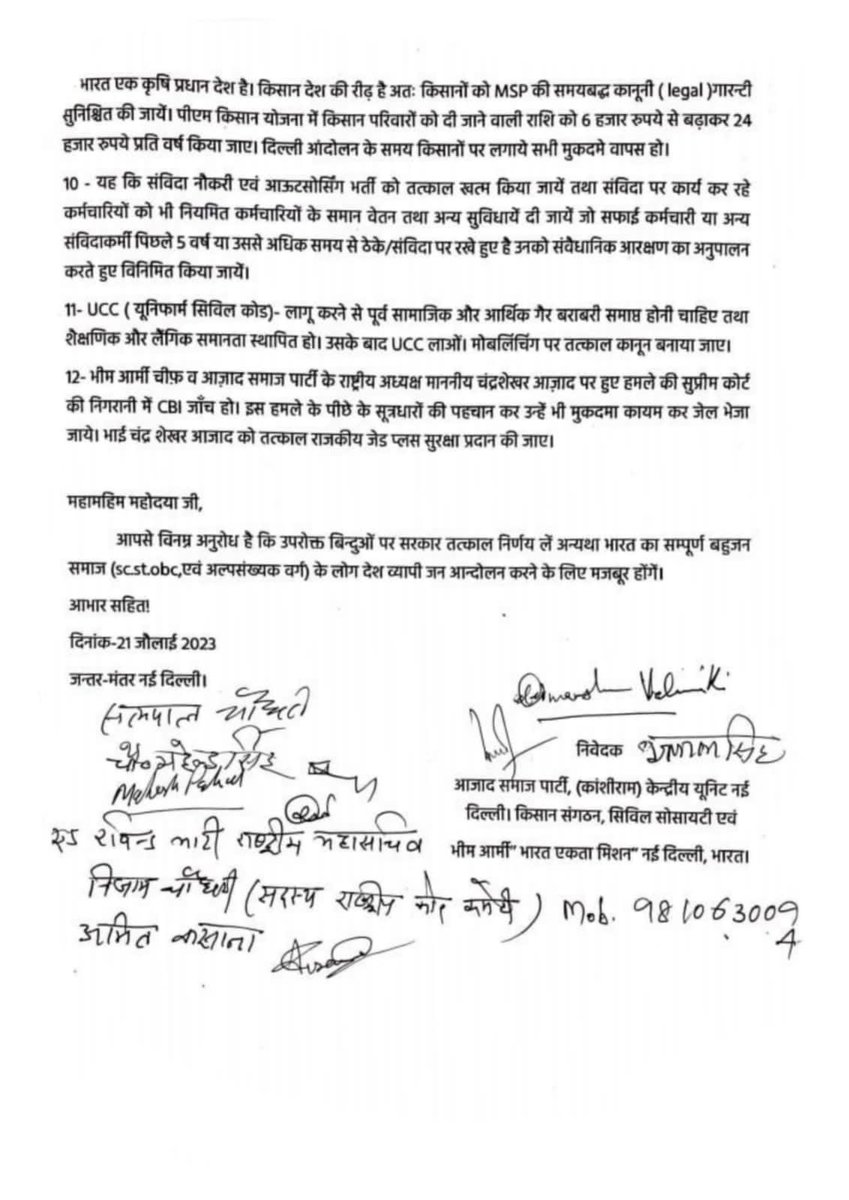 भारत एक कृषि प्रधान देश है। किसान देश की रीढ़ है अतः किसानों को MSP की समयबद्ध कानूनी ( legal )गारन्टी
सुनिश्चित की जायें। पीएम किसान योजना में किसान परिवारों को दी जाने वाली राशि को 6 हजार रुपये से बढ़ाकर 24
हजार रुपये प्रति वर्ष किया जाए। दिल्ली आंदोलन के समय किसानों पर लगाये सभी मुकदमे वापस हो।
10 - यह कि संविदा नौकरी एवं आऊटसोर्सिंग भर्ती को तत्काल खत्म किया जायें तथा संविदा पर कार्य कर रहे
कर्मचारियों को भी नियमित कर्मचारियों के समान वेतन तथा अन्य सुविधायें दी जायें जो सफाई कर्मचारी या अन्य
संविदाकर्मी पिछले 5 वर्ष या उससे अधिक समय से ठेके/संविदा पर रखे हुए है उनको संवैधानिक आरक्षण का अनुपालन
करते हुए विनिमित किया जायें।
11- UCC ( यूनिफार्म सिविल कोड)- लागू करने से पूर्व सामाजिक और आर्थिक गैर बराबरी समाप्त होनी चाहिए तथा
शैक्षणिक और लैंगिक समानता स्थापित हो। उसके बाद UCC लाओं। मोबलिंचिंग पर तत्काल कानून बनाया जाए।
12- भीम आर्मी चीफ़ व आज़ाद समाज पार्टी के राष्ट्रीय अध्यक्ष माननीय चंद्रशेखर आज़ाद पर हुए हमले की सुप्रीम कोर्ट
की निगरानी में CBI जाँच हो। इस हमले के पीछे के सूत्रधारों की पहचान कर उन्हें भी मुकदमा कायम कर जेल भेजा
जाये। भाई चंद्र शेखर आजाद को तत्काल राजकीय जेड प्लस सुरक्षा प्रदान की जाए।
महामहिम महोदया जी,
आपसे विनम्र अनुरोध है कि उपरोक्त बिन्दुओं पर सरकार तत्काल निर्णय लें अन्यथा भारत का सम्पूर्ण बहुजन
समाज (sc.st.obc,एवं अल्पसंख्यक वर्ग) के लोग देश व्यापी जन आन्दोलन करने के लिए मजबूर होंगें।
आभार सहित!
दिनांक-21 जौलाई 2023
जन्तर-मंतर नई दिल्ली।
सतपाल चौधरी
Valmiki
निवेदक
आजाद समाज पार्टी, (कांशीराम) केन्द्रीय यूनिट नई
दिल्ली। किसान संगठन, सिविल सोसायटी एवं
भीम आर्मी" भारत एकता मिशन" नई दिल्ली, भारत।
रविन्द्र भाटी राष्ट्रीय महासचिव
निजाम चौधरी (सदस्य राष्ट्रीय कोर कमेटी) Mob. 9810630094
अमित कसाना